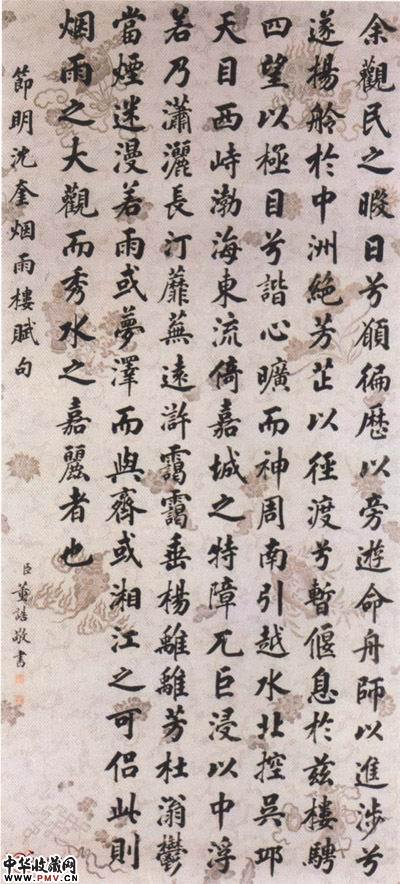 余觀民之暇日兮願徧歷以旁遊命舟師以進涉兮
遂揚舲於中洲絶芳芷以徑渡兮暫偃息於茲樓騁
四望以極目兮諧心曠而神周南引越水北控吳邛
天目西峙渤海東流倚嘉城之特障兀巨浸以中浮
若乃瀟灑長汀蘼蕪遠滸靄靄垂楊離離芳杜滃鬱
當煙迷漫若雨或夢澤而與齊或湘江之可侣此則
烟雨之大觀而秀水之嘉麗者也
節明沈奎烟雨樓賦句
臣董誥敬書
中华收藏网
www.PMV.cn